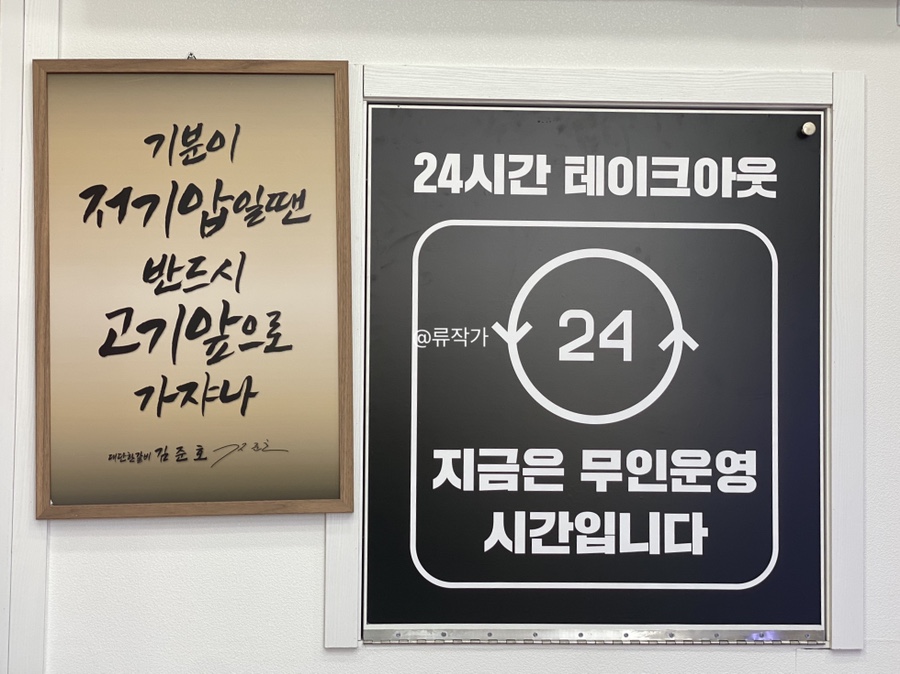 기분이
저기압일땐
반드시
고기앞으로
가쟈나
대단한갈비 김준호
24시간 테이크아웃
@류작가
24
지금은 무인운영
시간입니다